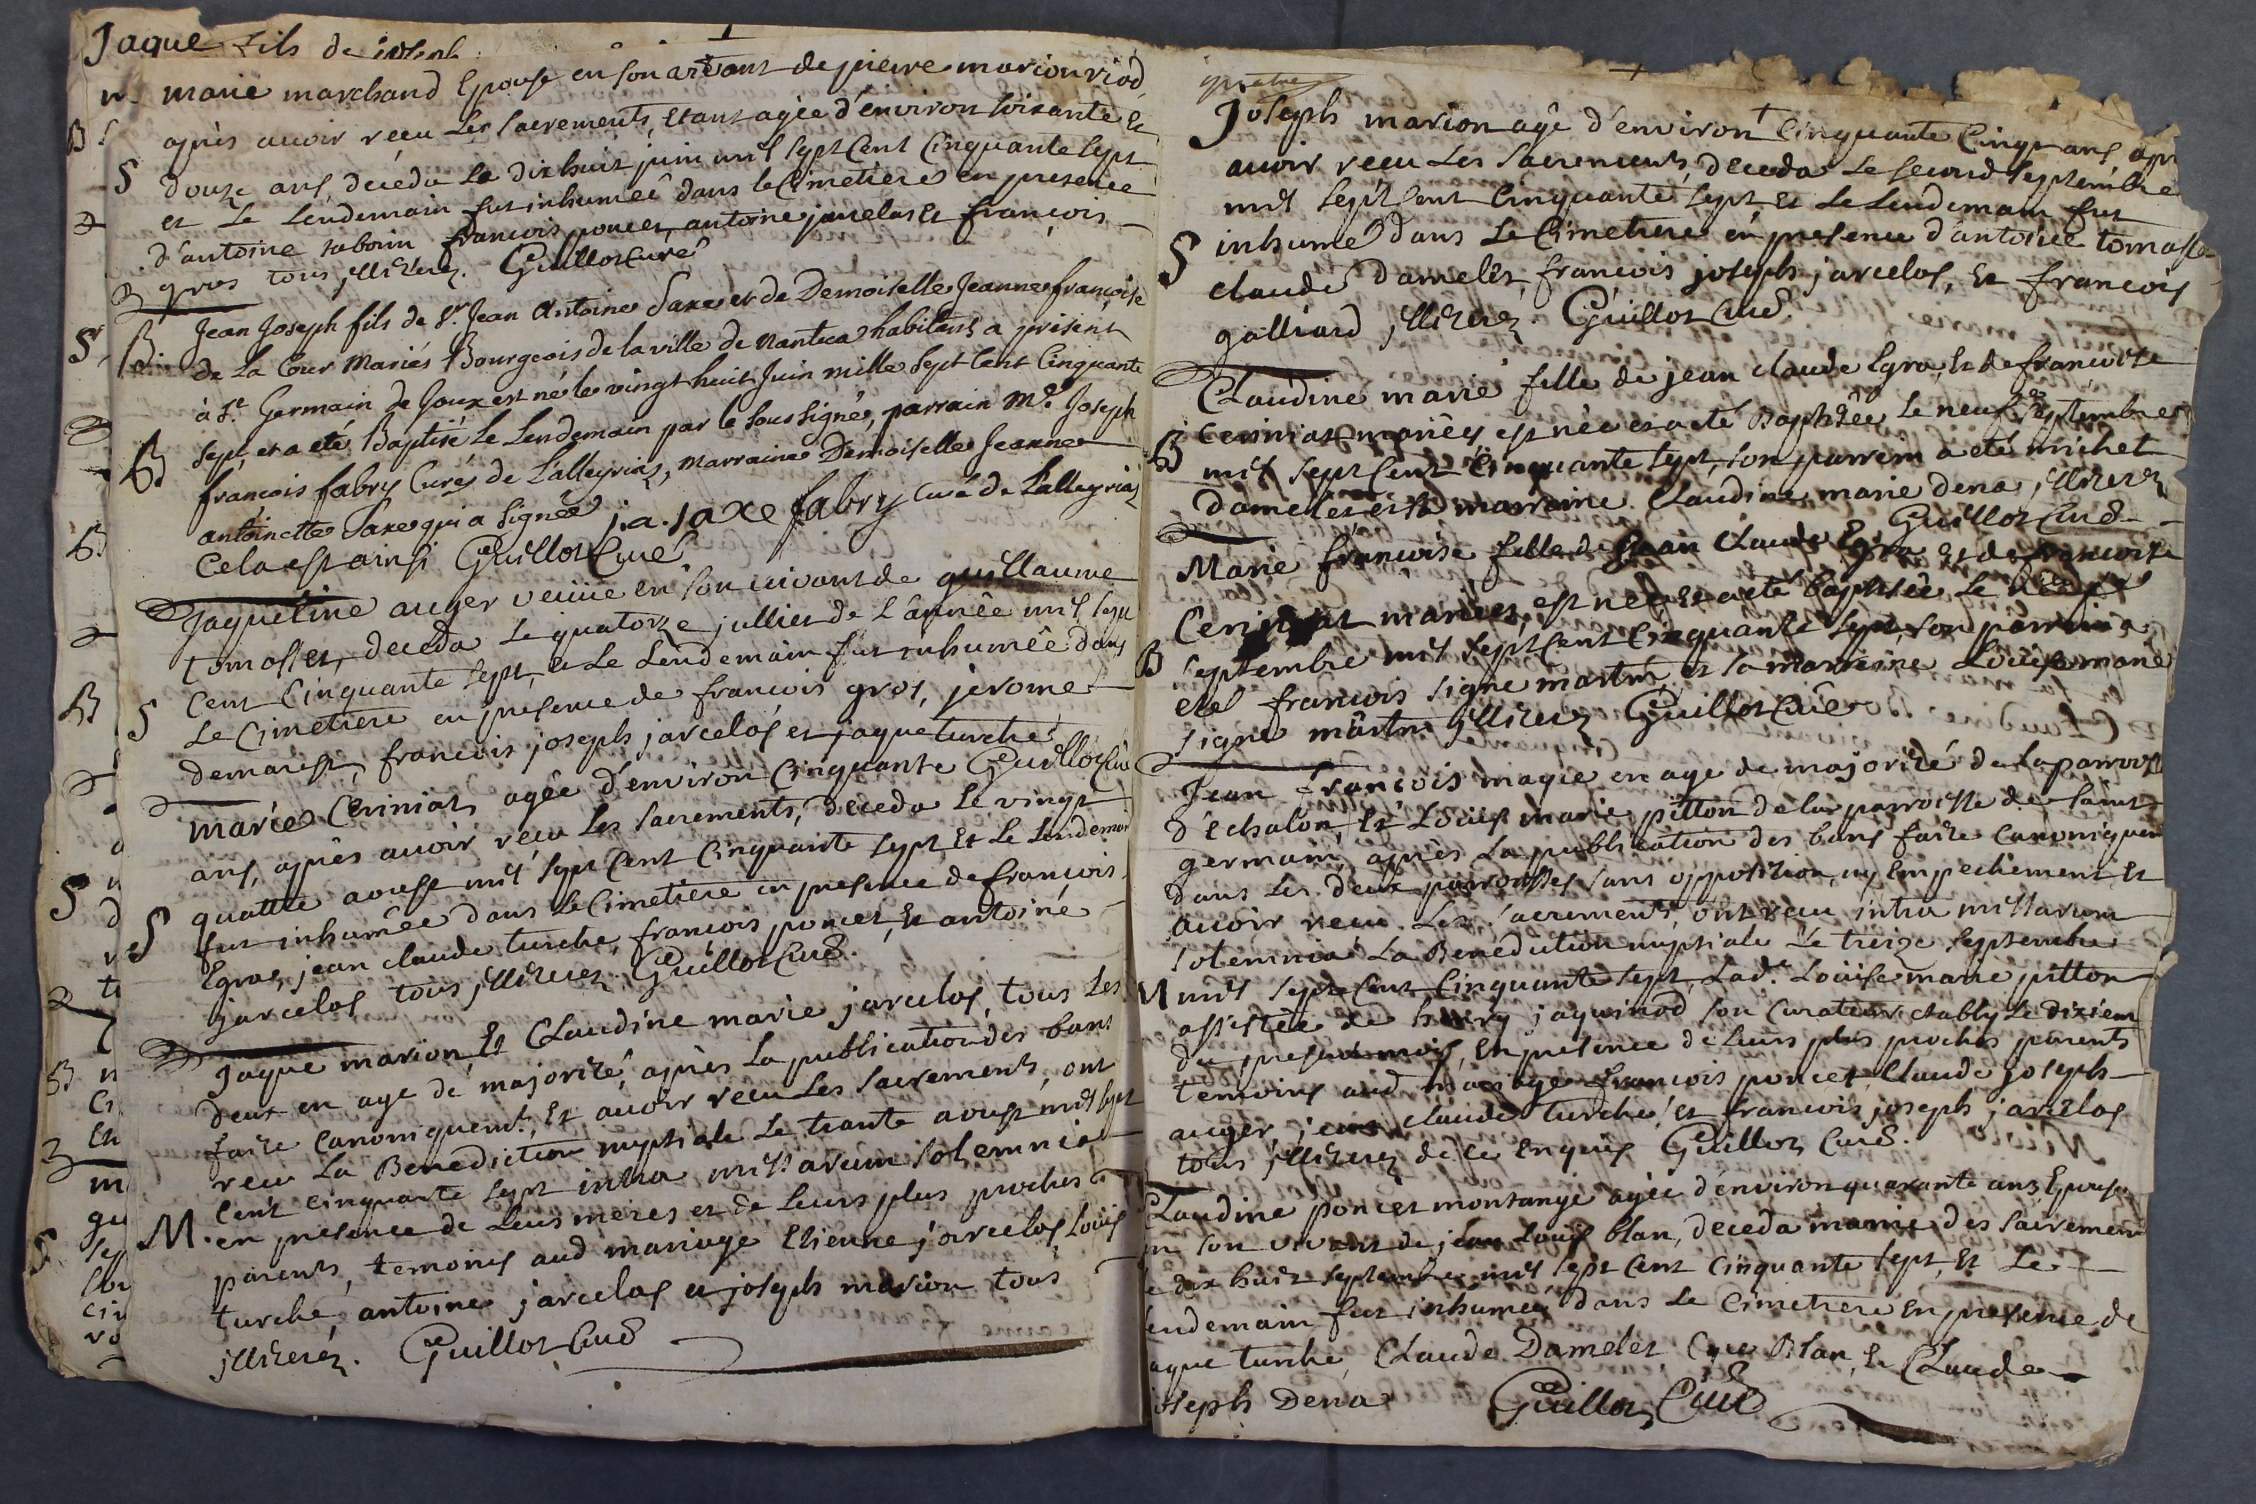 Jaque fils de joseph
marie marchand Epouse en son vivant de pierre marion riod
après avoir réçu Les sacrements, Etant agée d'environ soixante Et
S douze ans, deceda Le dix huit juin mil sept Cent Cinquante sept
et Le Lendemain fut inhumeê dans le Cimetiere en presence
d'antoine tabourin francois poncet, antoine jarcelas Et françois
gros tous illiterez. Guillot Curé
B. Jean Joseph fils de Sr. Jean Antoine Saxe et de Demoiselle Jeanne françoise
de La Cour Mariés Bourgeois de la ville de Nantua habitants a présent
à St. Germain de Joux est né le vingt huit Juin mille Sept Cent Cinquante
B Sept, et a été Baptisé Le Lendemain par le Sous Signé, parrain Mre. Joseph
françois fabry Curé de Lalleyriat, Marraine Demoiselle Jeanne
antoinette Saxe qui a Signée j. a. saxe fabry Curé de Lalleyriat
Cela est ainsi Guillot Curé
Jaqueline auger veuve en son vivant de guillaume
tomasset, deceda Le quatorze jullier de L'année mil sept
Cent Cinquante sept, et Le Lendemain fut inhumée dans
S Le Cimetiere en presence de françois gros, jerome
demarest, françois joseph jarcelos et jaque turche
Guillot Curé
marie Ceriniat agée d'environ Cinquante
ans, après avoir reçu Les sacrements, deceda Le vingt
quattre aoust mil sept Cent Cinquante sept Et Le Lendemain
S fut inhumée dans Le Cimetiere en presence de françois
Egros, jean claude turche, françois poncet, Et antoine
jarcelos tous illiterez. Guillot Curé.
Jaque marion, Et CLaudine marie jarcelos, tous Les
deux en age de majorité, après La publication des bans
faite canoniquemt., Et avoir reçu Les sacrements, ont
reçu La Benediction nuptiale Le trante aoust mil sept
Cent Cinquante sept intra missarum solemnia
M. en presence de Leurs meres et de Leurs plus proches
parents, temoins aud mariage Etienne jarcelos, Louis
turche, antoine jarcelos et joseph marion tous
illiterez. Guillot Curé
Joseph marion agê d'environ Cinquante Cinq ans, apr
avoir reçu Les sacrements, deceda Le second septembre
mil sept Cent Cinquante sept, Et Le Lendemain fut
S inhumé dans Le Cimetiere en presence d'antoine tomasset
claude damelet, françois joseph jarcelos, Et françois
galliard illiterez. Guillot Curé.
CLaudine marie fille de jean claude Egra, Et de francoise
B Ceriniat mariés est née et a eté Baptisée Le neuf septembre
mil sept Cent Cinquante sept, son parrein a eté michel
damelet et sa marraine CLaudine marie dena, illiterez
Guillot Curé
Marie françoise fille de Jean Claude Egra Et de françoise
Ceriniat mariés, est née Et a eté baptisée Le neuf
B septembre mil sept Cent Cinquante sept, son parrain a
eté françois signe martin, et sa marreine Louise marie
signe martin illiterez Guillot Curé
Jean François magie en age de majorité de La parroisse
d'Echalon, Et Louise marie pitton de la parroisse de saint
germain, après La publication des bans faite canoniquem
dans Les deux parroisses sans opposition, ny Empechement Et
avoir reçu Les sacrements, ont reçu intra missarum
solemnia La Benediction nuptiale Le treize septembre
M mil sept Cent Cinquante sept, Lade. Louise marie pitton
assistée de jaquinod son Curateur etably Le dixiem
du present mois, En presence de Leurs plus proches parents
temoins aud mariage françois poncet, Claude joseph
auger, jean claude turche, Et françois joseph jarcelos
tous illiterez de ce Enquis Guillot Curé.
CLaudine poncet montange agée d'environ quarante ans, Epouse
en son vivant de jean Louis blan, deceda munie des sacrement
le dix huit septembre mil sept Cent Cinquante sept, Et Le
lendemain fut inhumée dans Le Cimetiere En presence de
aque turche, CLaude Damelet, Blan, Et CLaude
joseph Dena Guillot Curé